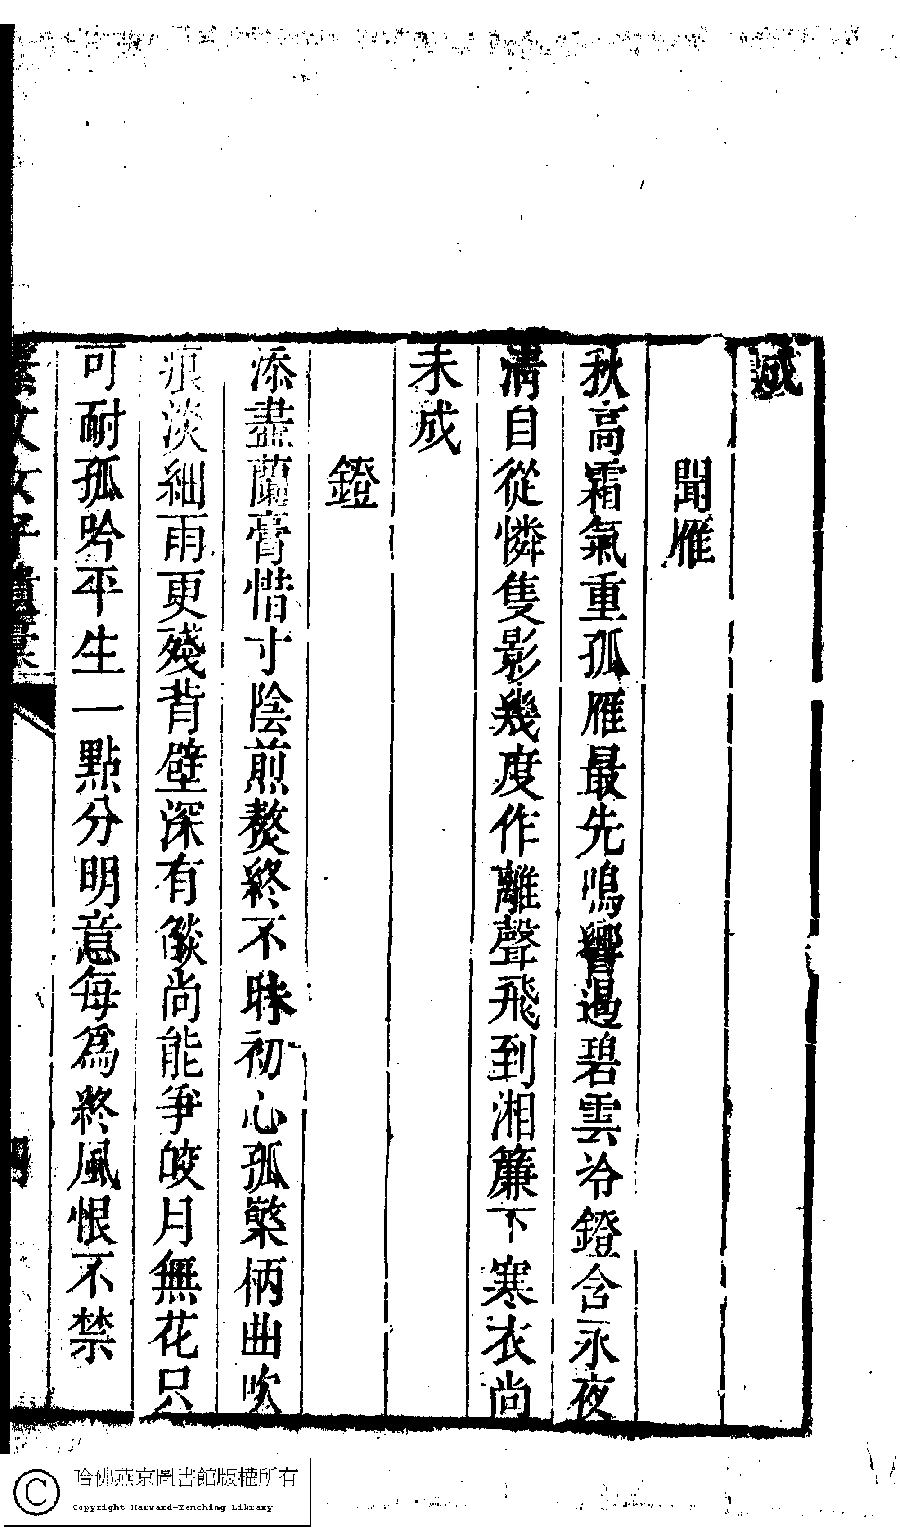 減
聞雁
秋高霜氣重孤雁最先鳴響遏碧雲冷鐙含永夜
清自從憐隻影幾度作離聲飛到湘簾下寒衣尚
未成
鐙
添盡蘭膏惜寸陰煎熬終不昧初心孤檠柄曲吹
痕淡細雨更殘背壁深有燄尚能爭皎月無花只
可耐孤吟平生一點分明意每為終風恨不禁
素文女子遺稾
四
哈佛燕京圖書館版權所有
Copyright Harvard-Yenching Library